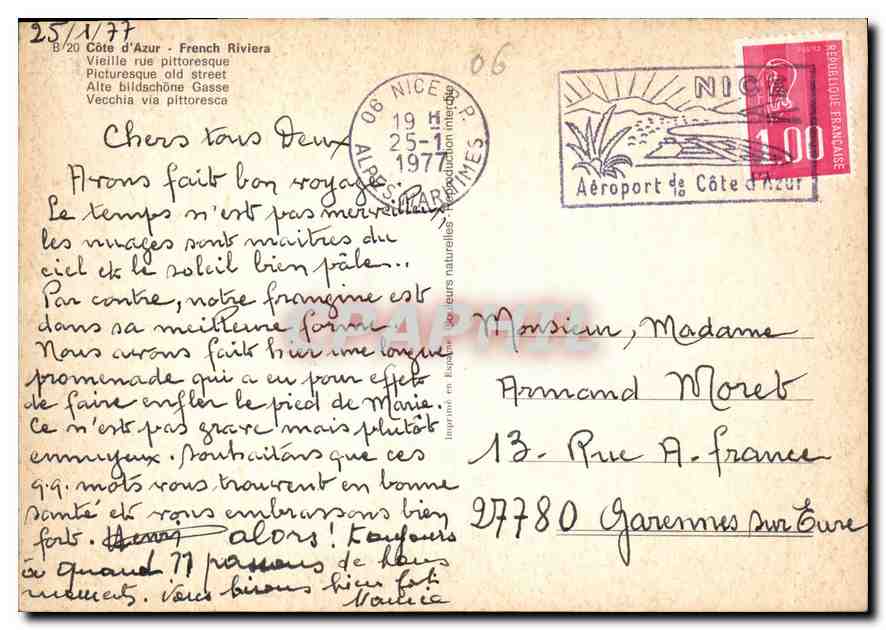 25/1/77
B 20 Côte d'Azur - French Riviera
Vieille rue pittoresque
Picturesque old street
Alte bildschöne Gasse
Vecchia via pittoresca
06
06 NICE R.P.
19 H
25-1
1977
ALPES-MARITIMES
NICE
Aéroport de la Côte d'Azur
REPUBLIQUE FRANÇAISE
1,00
Chers tous Deux
Avons fait bon voyage.
Le temps n'est pas merveilleux,
les nuages sont maitres du
ciel et le soleil bien pâle...
Par contre, notre frangine est
dans sa meilleure forme.
Nous avons fait hier une longue
promenade qui a eu pour effet
de faire enfler le pied de Marie.
Ce n'est pas grave mais plutôt
ennuyeux. Souhaitons que ces
q.q. mots vous trouvent en bonne
santé et vous embrassons bien
fort. Henri alors! toujours
à quand ?? passons de bons
moments. Vous bisons bien fort
Imprimé en Espagne - Couleurs naturelles - Reproduction interdite
CPAPHIL
Monsieur, Madame
Armand Moret
13. Rue A. france
27780 Garennes sur Eure